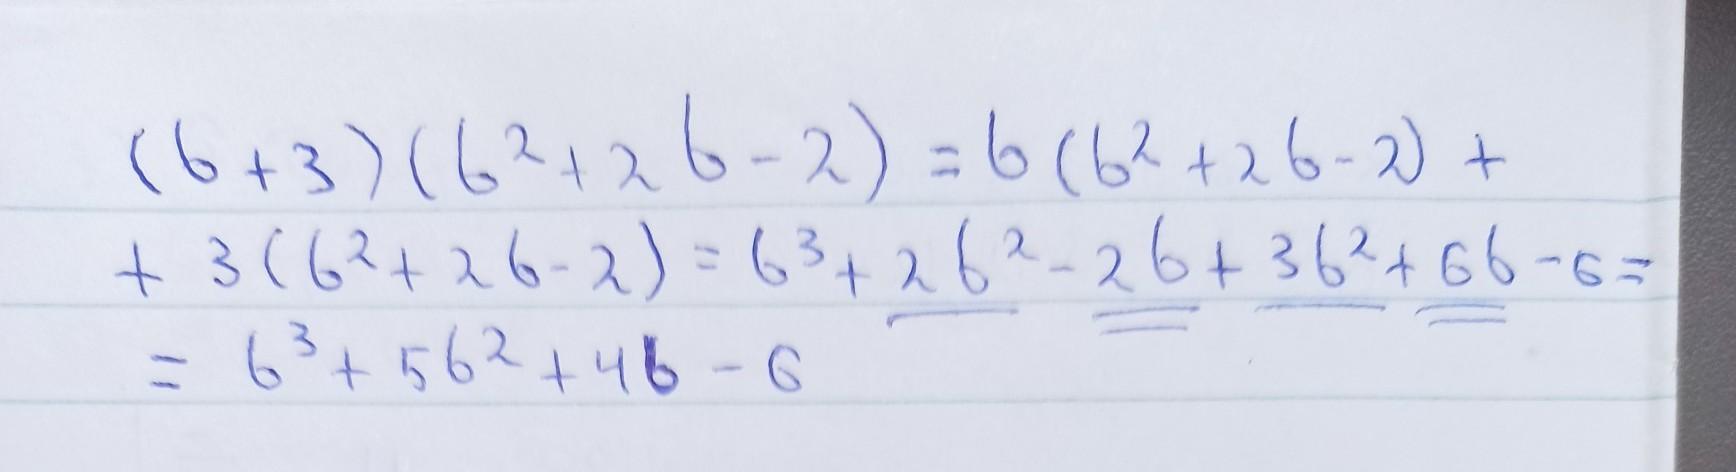 (b+3)(b²+2b-2)=b(b²+2b-2)+
+3(b²+2b-2)=b³+2b²-2b+3b²+6b-6=
=b³+5b²+4b-6